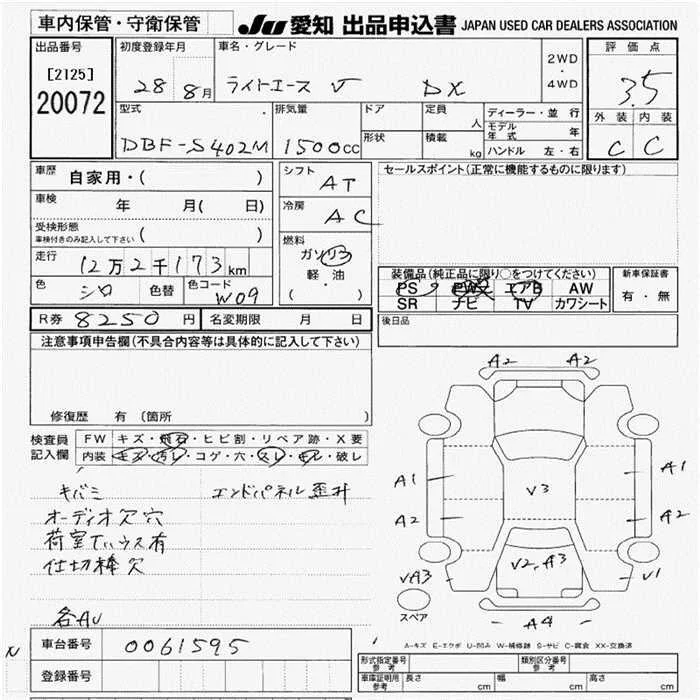 車内保管・守衛保管
JU 愛知 出品申込書 JAPAN USED CAR DEALERS ASSOCIATION
出品番号
[2125]
20072
初度登録年月
28 8月
車名・グレード
ライトエース V DX
2WD
・
4WD
評価点
3.5
外装 内装
C C
型式
DBF-S402M
排気量
1500cc
ドア
形状
定員
人
積載
kg
ディーラー・並行
モデル年式 年
ハンドル 左・右
車歴
自家用・( )
車検
年 月( 日)
受検形態
車検付きのみ記入して下さい ( )
走行
12万2千173km
色
シロ
色替
色コード
W09
シフト
AT
冷房
AC
燃料
ガソリン
軽油
( ・ )
セールスポイント(正常に機能するものに限ります)
装備品(純正品に限り○をつけてください)
PS PW エアB AW
SR ナビ TV カワシート
新車保証書
有・無
後日品
R券 8250円
名変期限 月 日
注意事項申告欄(不具合内容等は具体的に記入して下さい)
修復歴 有 (箇所 )
検査員
記入欄
FW キズ・飛石・ヒビ割・リペア跡・X要
内装 キズ・汚レ・コゲ・穴・スレ・キレ・破レ
キバミ
エンドパネル歪井
オーディオ欠穴
荷室ていウス有
仕切棒欠
各AU
A2 A2
A1 A1
A2 A2
V3
V2,A3
VA3 V1
A4
スペア
A-キズ E-エクボ U-凹み W-補修跡 S-サビ C-腐食 XX-交換済
N
車台番号
0061595
登録番号
形式指定番号
参考
類別区分番号
参考
車庫証明用
参考
長さ cm
幅 cm
高さ cm